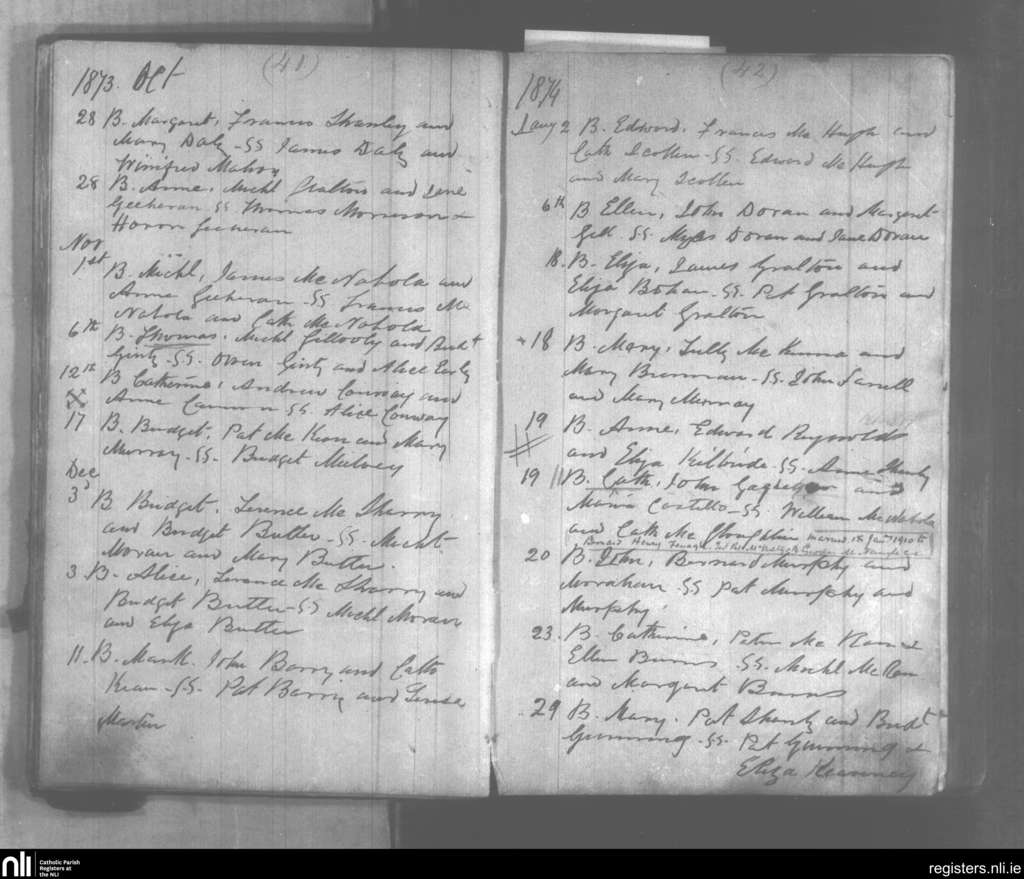 (41)
1873. Oct
28 B. Margaret, Francis Shanley and
Mary Daly - SS James Daly and
Winifred Mahon
28 B. Anne, Michl Gralton and
Geeheran SS Thomas Morrison &
Honor Geeheran
Nov
1st B. Michl, James Mc Nabola and
Anne Geeheran - SS Francis Mc
Nabola and Cath Mc Nabola
6th B. Thomas, Michl Gilhooly and Bridt
Ginty - SS. Owen Ginty and Alice Early
12th B Catherine, Andrew Conway and
Anne SS Alice Conway
17 B. Bridget, Pat Mc Keon and Mary
Murray - SS. Bridget Mulvey
Dec
3d B Bridget, Terence Mc Sharry
and Bridget Butler - SS. Michl
Moran and Mary Butler.
3. B. Alice, Terence Mc Sharry and
Bridget Butler - SS Michl Moran
and Eliza Butler
11. B. Mark. John Barry and Cath
Kean - SS. Pat Barry and
Martin
(42)
1874
Jany 2 B. Edward, Francis Mc Hugh and
Cath Scollen - SS. Edward Mc Hugh
and Mary Scollen
6th B Ellen, John Doran and Margaret
Gill - SS. Myles Doran and Jane Doran
18. B. Eliza, James Gralton and
Eliza Bohan - SS. Pat Gralton and
Margaret Gralton
18 B. Mary, Tully Mc Kenna and
Mary Brennan - SS. John Farrell
and Mary Murray
19 B. Anne, Edward Reynolds
and Eliza Kilbride - SS. Anne Shanly
19 B. Cath, John and
Maria Costello - SS. William Mc Nabola
and Cath Mc Gloughlin married 18 Jany 1910 to
Bernard Henry
20 B. John, Bernard Murphy and
Morahan - SS Pat Murphy and
Murphy
23. B. Catherine, Peter Mc Keon &
Ellen Burns - SS. Michl Mc Keon
and Margaret Burns
29 B. Mary. Pat Shanly and Bridt
Gunning - SS. Pat Gunning &
Eliza Kearney
nli
Catholic Parish
Registers at
the NLI
registers.nli.ie